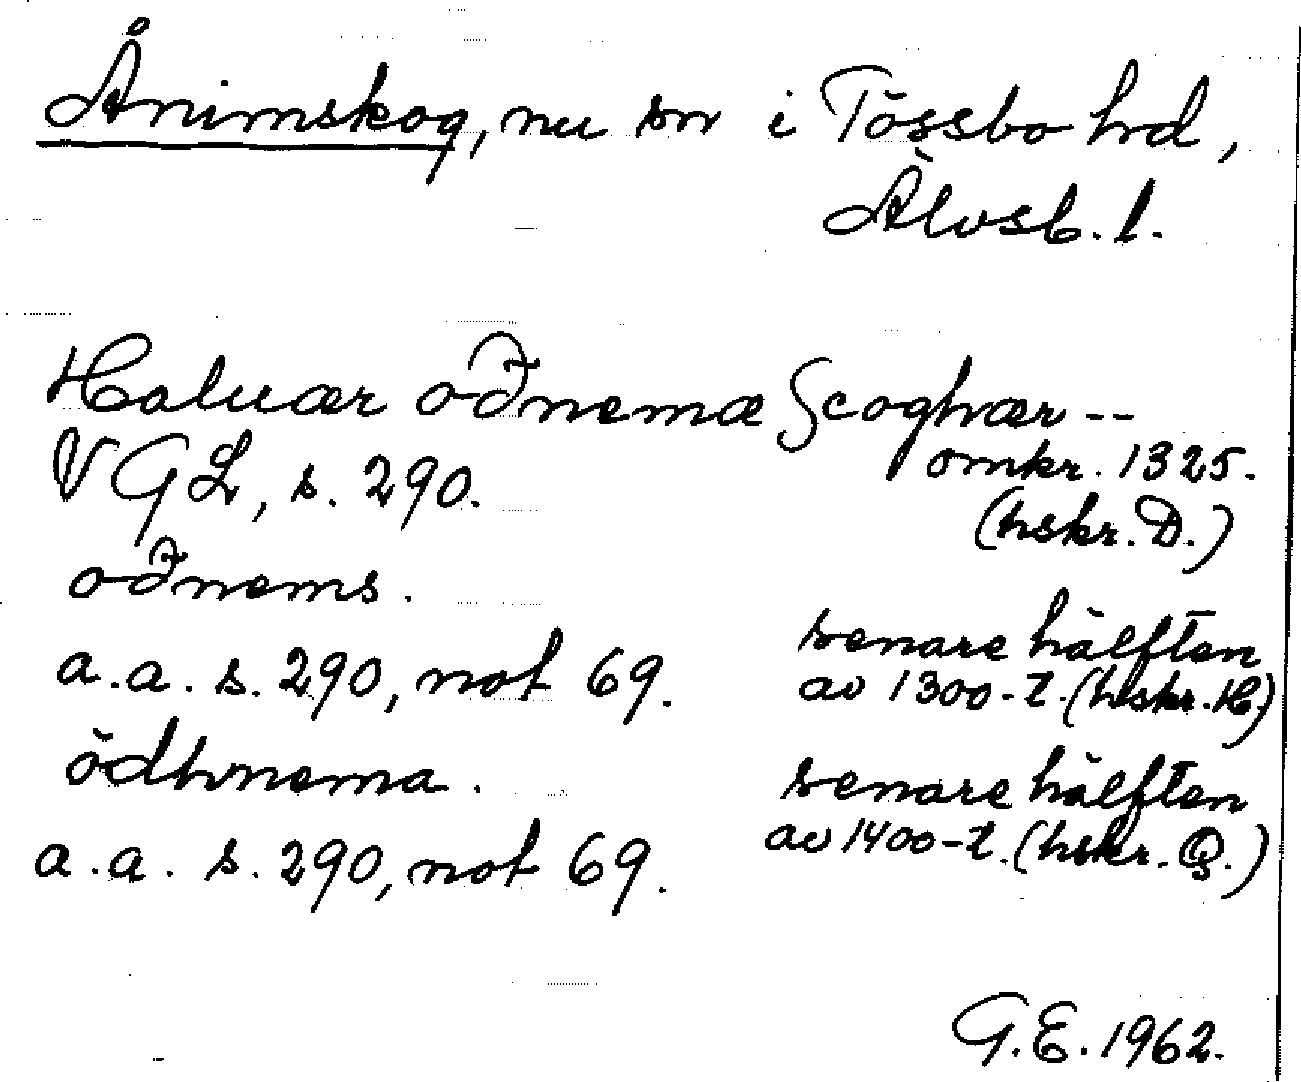 Ånimskog, nu sn i Tössbo hd,
Älvsb. l.
Haluær oðnemæ Scoghær --
VGL, s. 290.
omkr. 1325.
(hskr. D.)
oðnems.
a.a. s. 290, not 69.
senare hälften
av 1300-t. (hskr. H)
ödhnema.
a.a. s. 290, not 69.
senare hälften
av 1400-t. (hskr. Q.)
G.E. 1962.